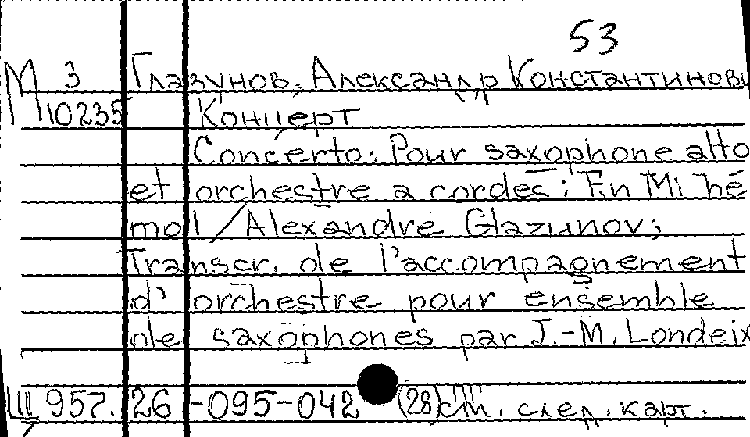 53
М 3 Глазунов, Александр Константинови
10235 Концерт
Concerto: Pour saxophone alto
et orchestre a cordes; En Mi bé
mol / Alexandre Glazunov;
Transcr. de l'accompagnement
d'orchestre pour ensemble
de saxophones par J.-M. Londeix
Щ957.26-095-042 (28) см. след. карт.